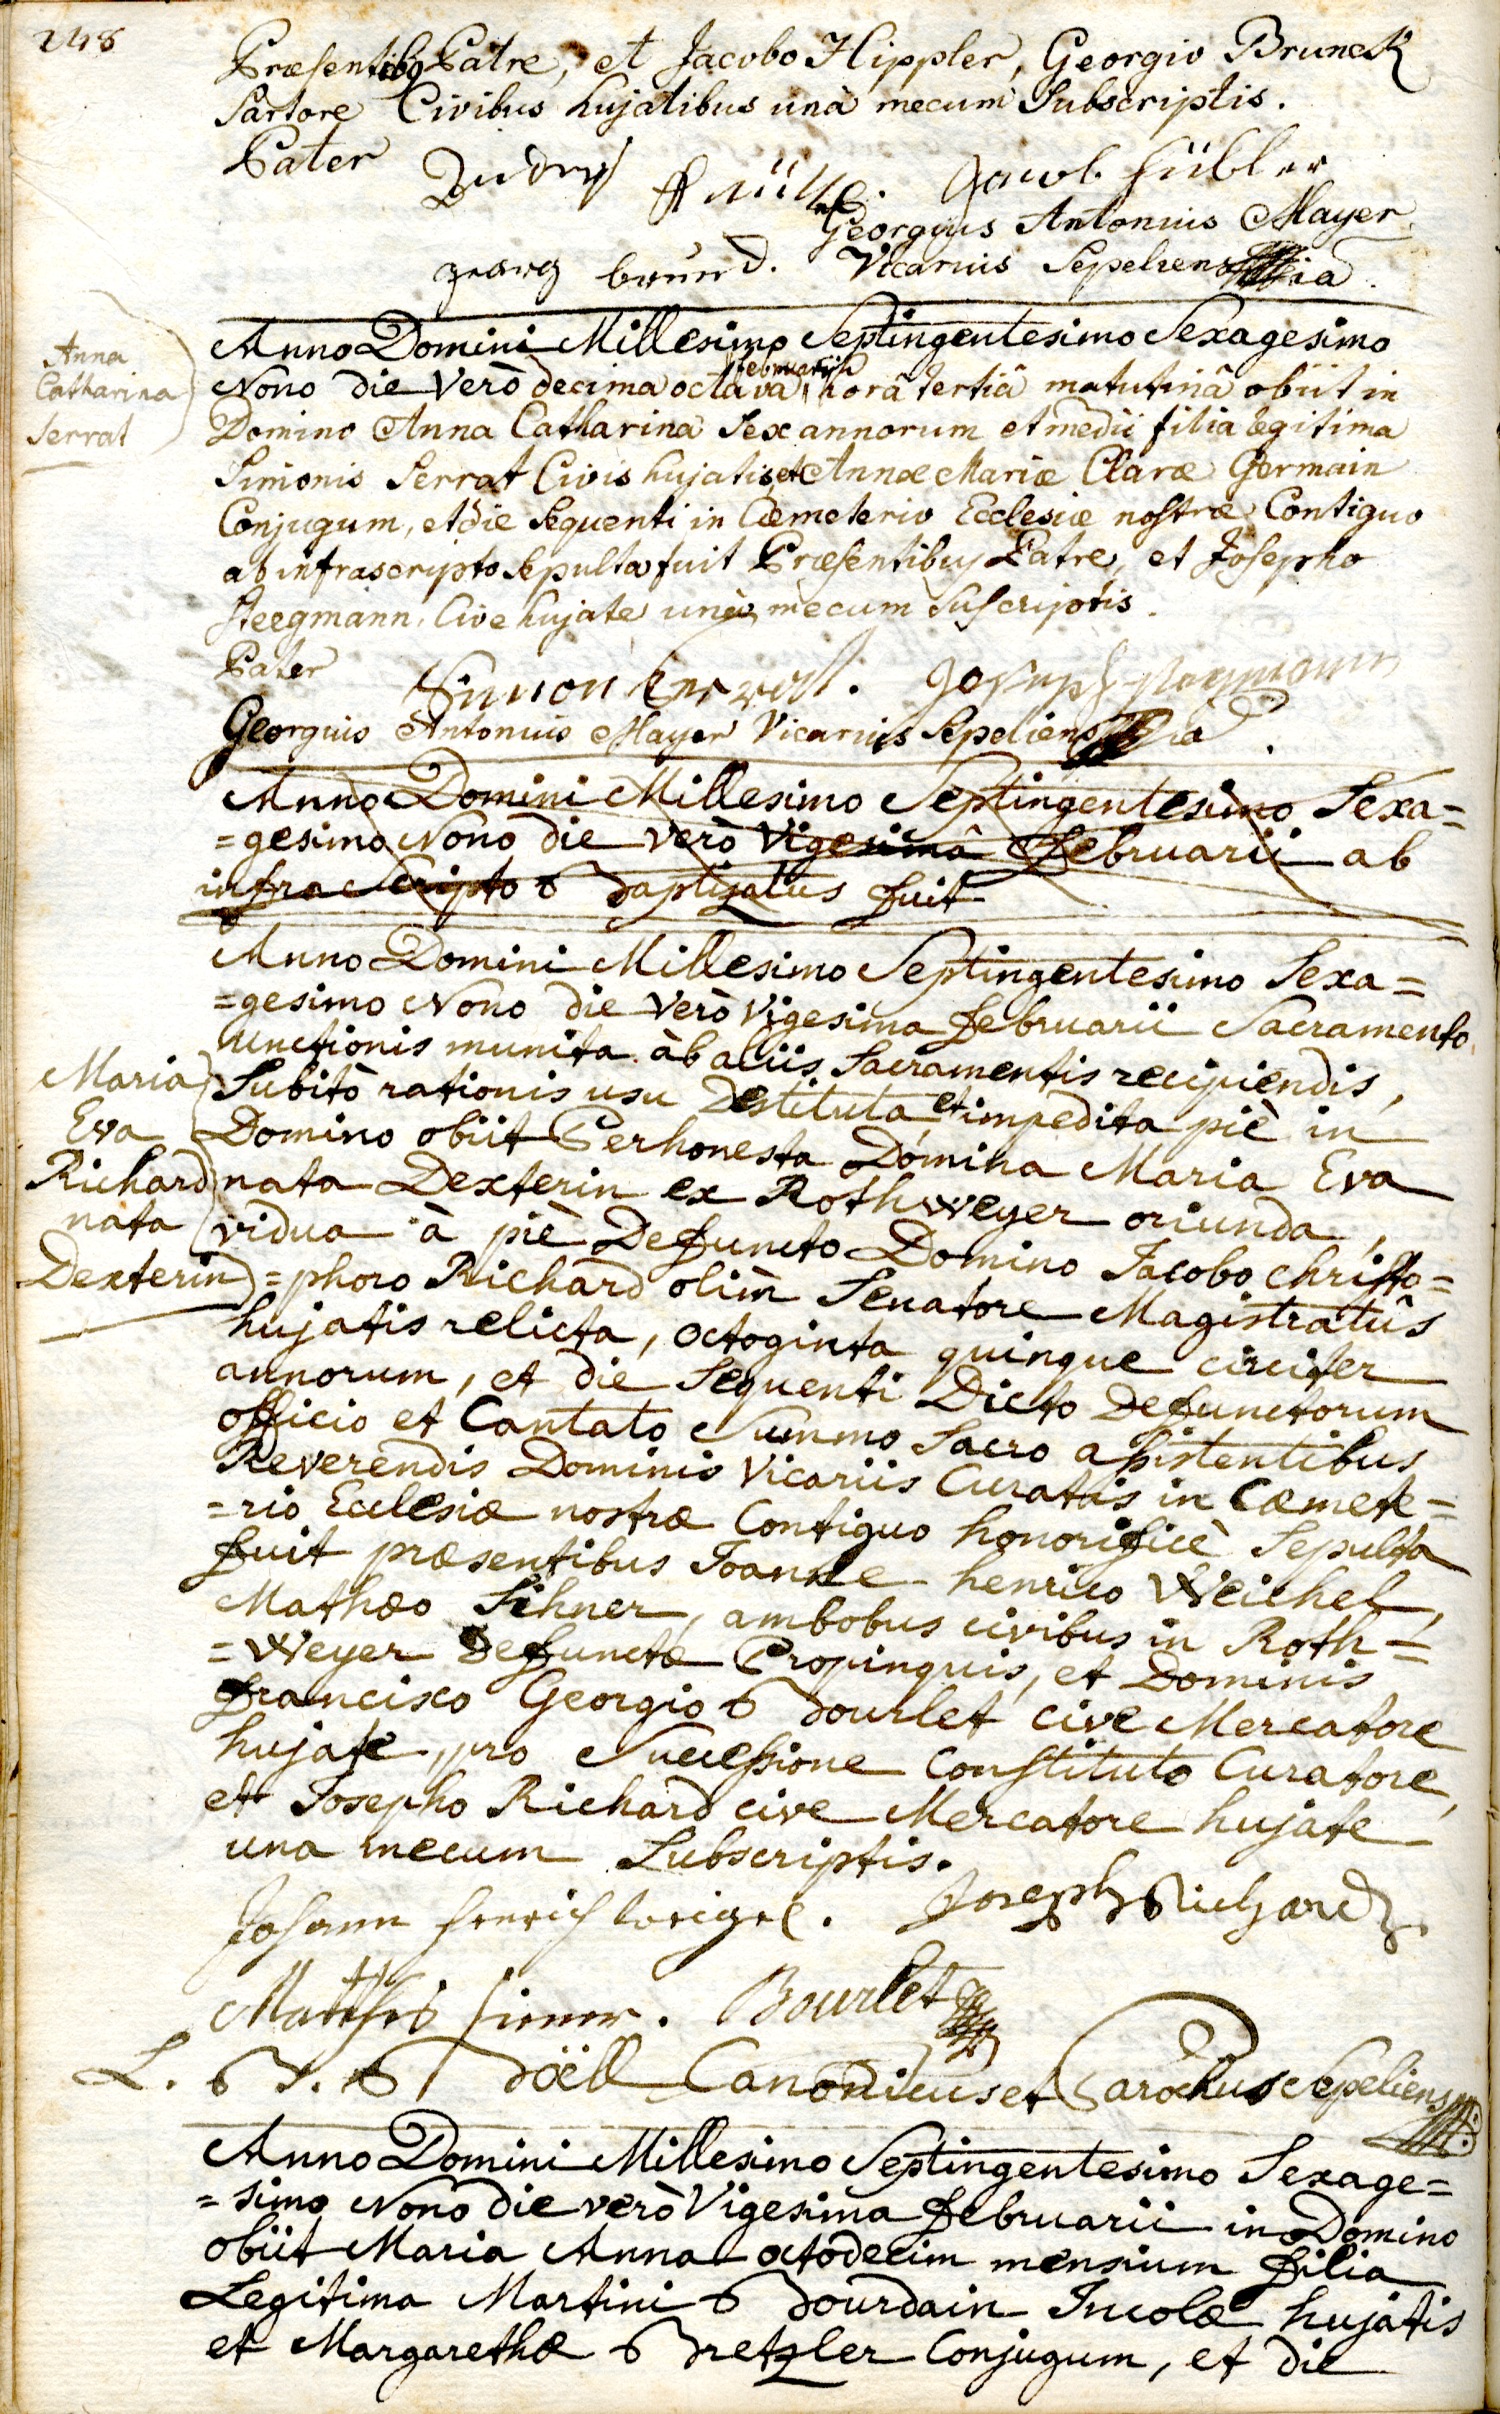 248
Præsentibq Patre, et Jacobo Hippler, Georgio Brunck
Sartore Civibus hujatibus unà mecum Subscriptis.
Pater
Jacob hübler
Georgius Antonius Mayer
georg brund. Vicarius Sepeliens
Anna
Catharina
Serrat
Anno Domini Millesimo Septingentesimo Sexagesimo
Nono die Verò decima octava februarii horâ tertiâ matutinâ obiit in
Domino Anna Catharina Sex annorum et medii filia legitima
Simonis Serrat Civis hujatis, et Annæ Mariæ Claræ Germain
Conjugum, et die Sequenti in Cæmeterio Ecclesiæ nostræ Contiguo
ab infrascripto Sepulta fuit Præsentibus Patre, et Josepho
Stegmann, Cive hujate unà mecum Suscriptis.
Pater Simon Serrat. Joseph stegmann
Georgius Antonius Mayer Vicarius Sepeliens
Anno Domini Millesimo Septingentesimo Sexa=
=gesimo Nono die verò Vigesimâ Februarii ab
infra Scripto Baptizatus fuit
Anno Domini Millesimo Septingentesimo Sexa=
=gesimo Nono die Verò Vigesima februarii Sacramento
unctionis munita àb aliis Sacramentis recipiendis,
Subitò rationis usu Destituta et impedita piè in
Domino obiit Perhonesta Domina Maria Eva
nata Dexterin ex Rothweyer oriunda,
vidua à piè Defuncto Domino Jacobo christo=
=phoro Richard olim Senatore Magistratûs
hujatis relicta, octoginta quinque circiter
annorum, et die Sequenti Dicto Defunctorum
officio et Cantato Summo Sacro assistentibus
Reverendis Dominis Vicariis Curatis in Cæmete=
=rio Ecclesiæ nostræ Contiguo honorificè Sepulta
fuit præsentibus Joanne henrico Weichel,
Mathæo Sihner, ambobus civibus in Roth=
=Weyer Defunctæ Propinquis, et Dominis
francisco Georgio Bourlet cive Mercatore
hujate, pro Successione Constituto Curatore,
et Josepho Richard cive Mercatore hujate
una mecum Subscriptis.
Maria
Eva
Richard
nata
Dexterin
Johann henrich weigel. Joseph Richard
Matthes siener. Bourlet
L. B. Böell Canonicus et Parochus Sepeliens
Anno Domini Millesimo Septingentesimo Sexage=
=simo Nono die verò Vigesima februarii in Domino
obiit Maria Anna octodecim mensium filia
Legitima Martini Bourdain Incolæ hujatis
et Margarethæ Bretzler Conjugum, et die